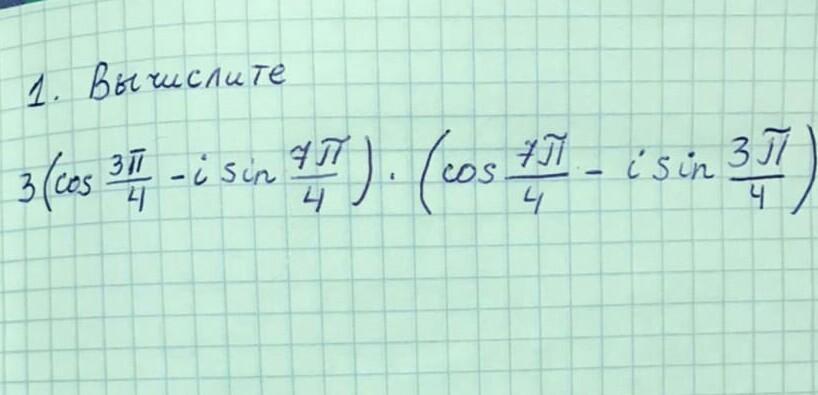 1. Вычислите
3(cos 3π/4 - i sin 7π/4) · (cos 7π/4 - i sin 3π/4)